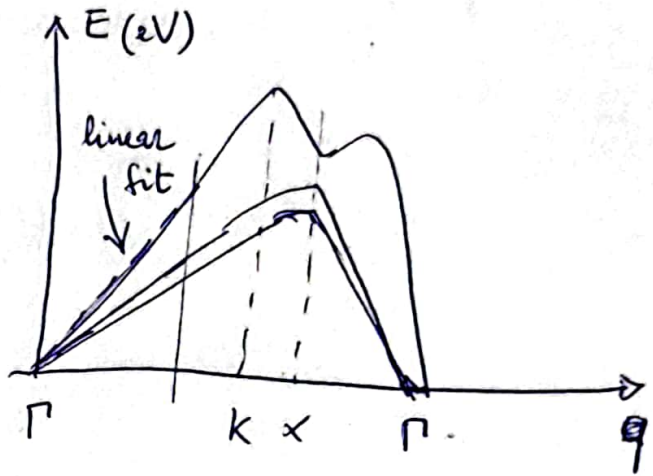 E (eV)
linear
fit
Γ K X Γ
q